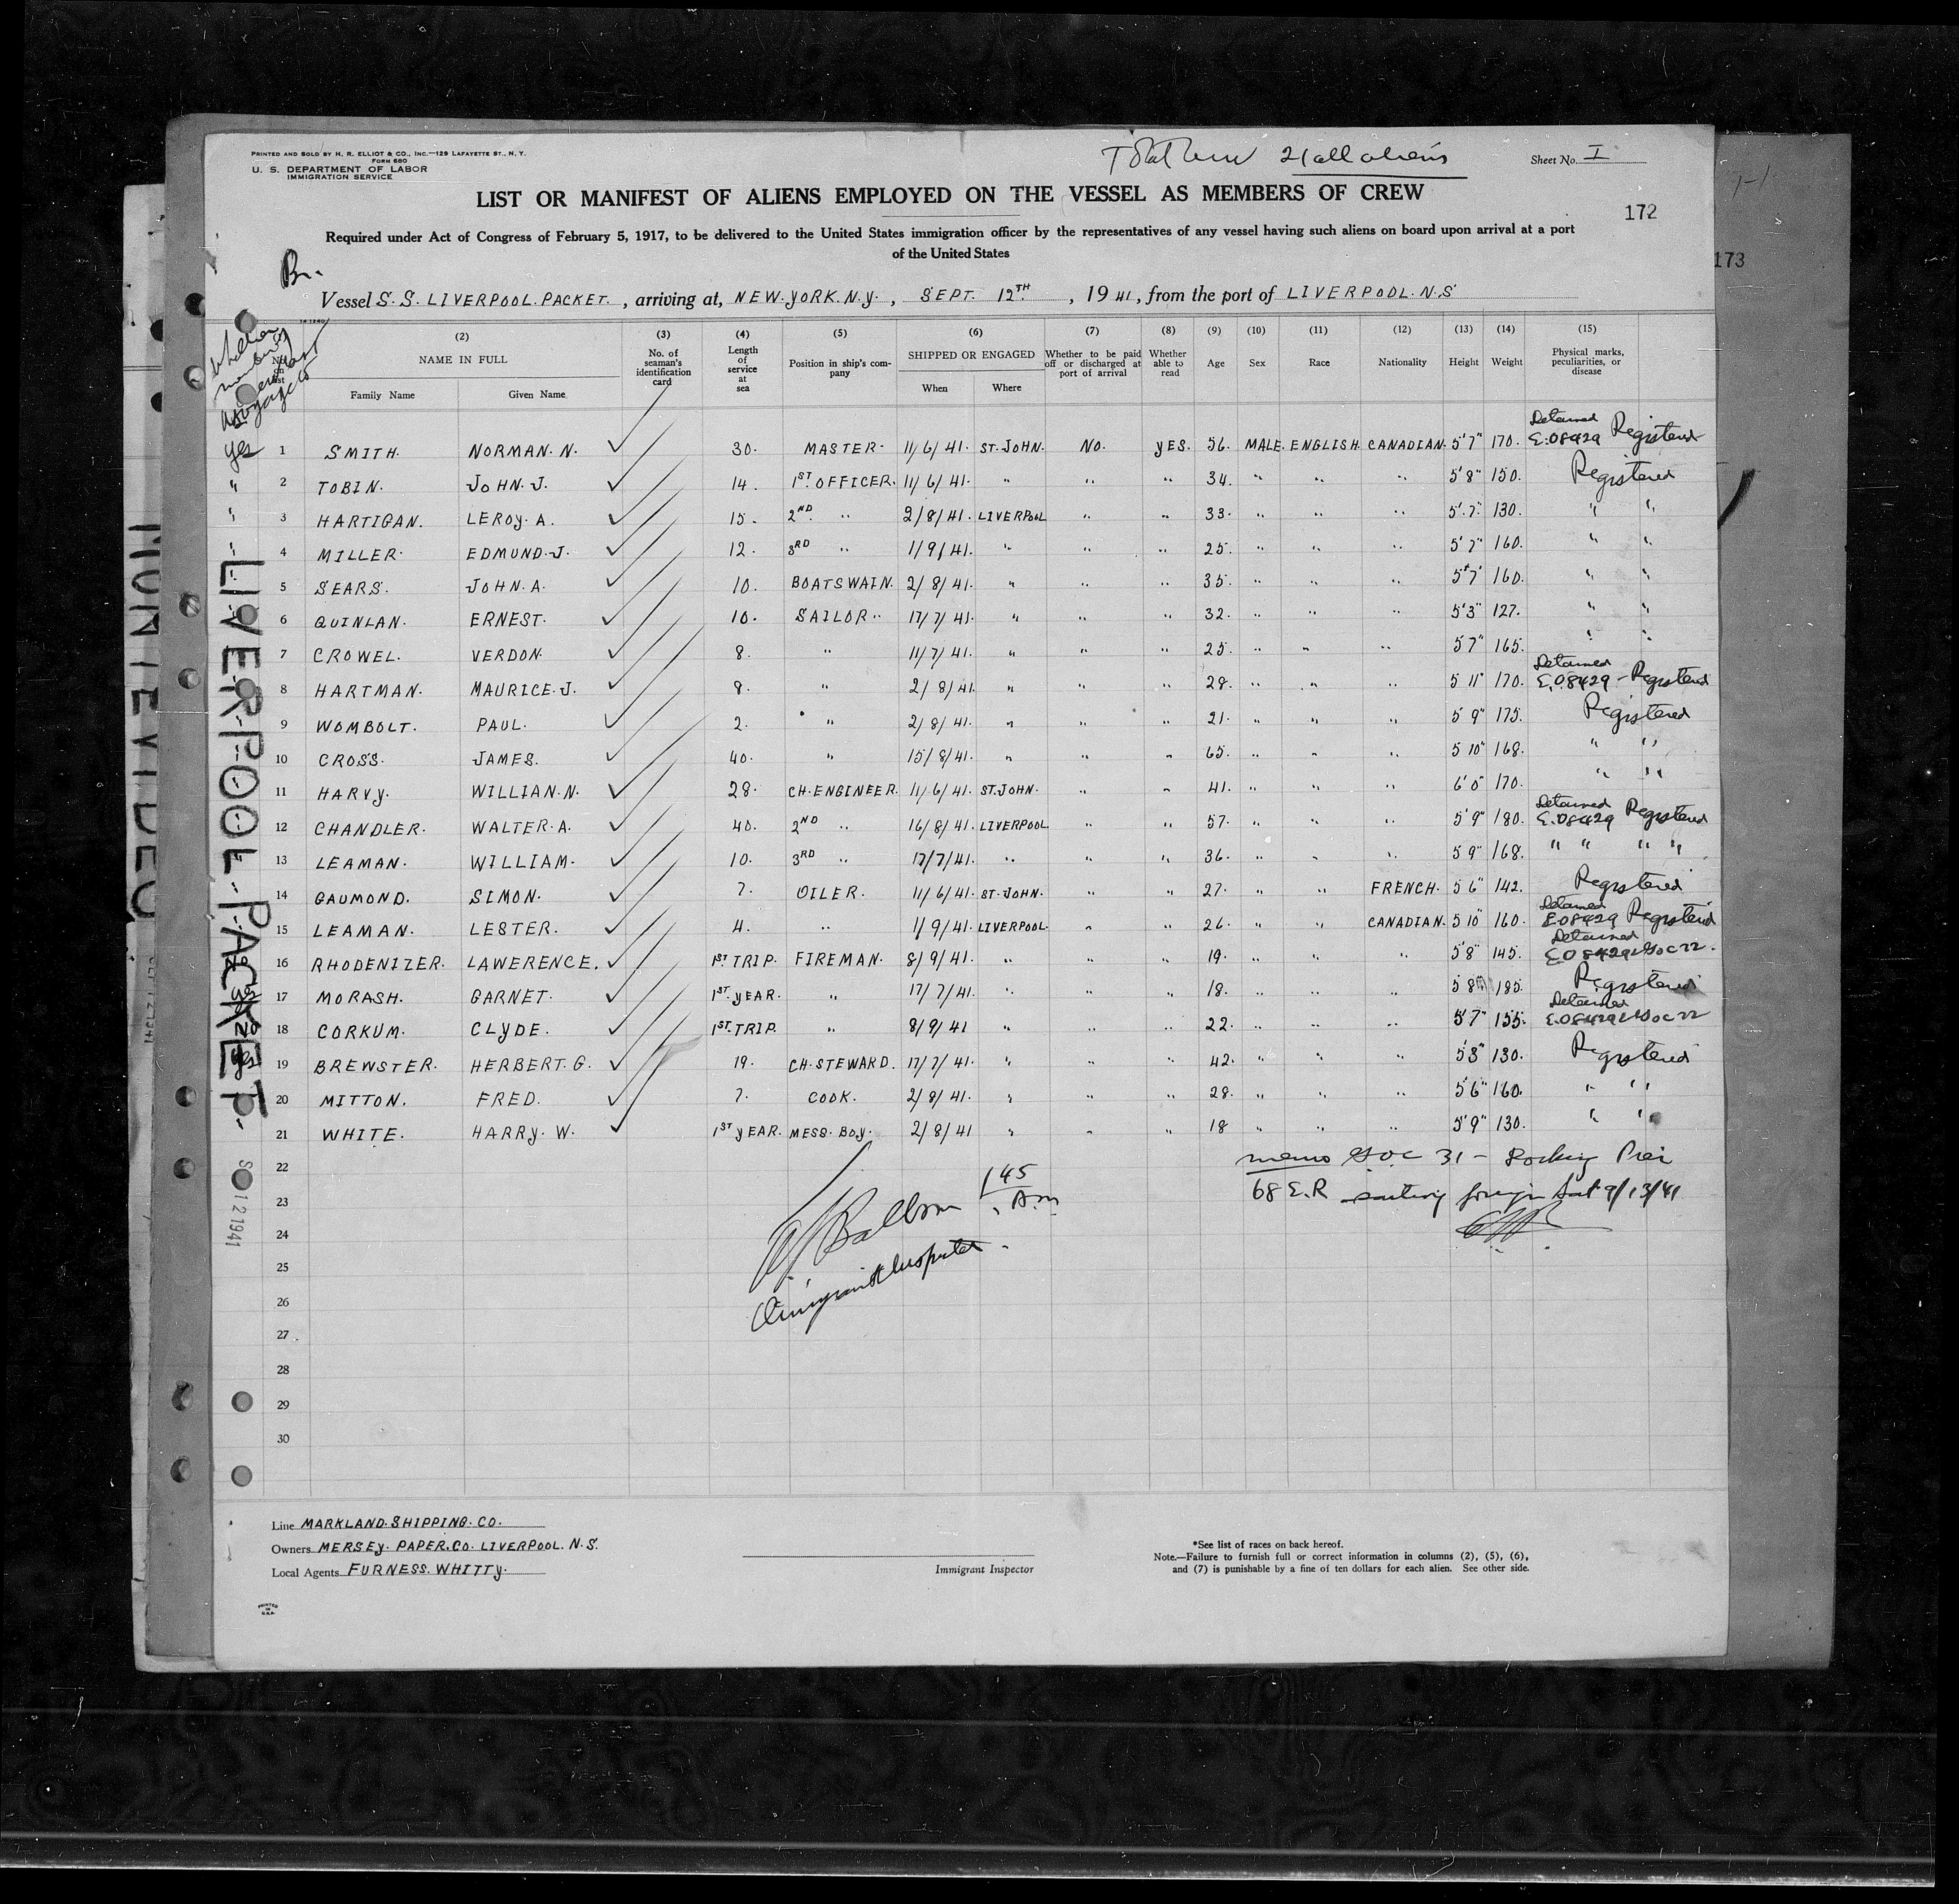 PRINTED AND SOLD BY H. R. ELLIOT & CO., INC.—129 LAFAYETTE ST., N. Y.
FORM 680
U. S. DEPARTMENT OF LABOR
IMMIGRATION SERVICE
Total Crew 21 all aliens
Sheet No. I
LIST OR MANIFEST OF ALIENS EMPLOYED ON THE VESSEL AS MEMBERS OF CREW
172
173
Required under Act of Congress of February 5, 1917, to be delivered to the United States immigration officer by the representatives of any vessel having such aliens on board upon arrival at a port
of the United States
Br.
Vessel S. S. LIVERPOOL. PACKET. , arriving at, NEW. YORK. N.Y. , SEPT. 12TH , 1941, from the port of LIVERPOOL. N.S
(2) (3) (4) (5) (6) (7) (8) (9) (10) (11) (12) (13) (14) (15)
NAME IN FULL No. of seaman's identification card Length of service at sea Position in ship's company SHIPPED OR ENGAGED Whether to be paid off or discharged at port of arrival Whether able to read Age Sex Race Nationality Height Weight Physical marks, peculiarities, or disease
Family Name Given Name When Where
yes 1 SMITH. NORMAN. N. ✓ 30. MASTER- 11/6/41. ST. JOHN. NO. YES. 56. MALE. ENGLISH. CANADIAN. 5'7" 170. Detained E.08429 Registered
" 2 TOBIN. JOHN. J. ✓ 14. 1ST OFFICER. 11/6/41. " " " 34. " " " 5'8" 150. Registered
" 3 HARTIGAN. LEROY. A. ✓ 15. 2ND " 2/8/41. LIVERPOOL " " 33. " " " 5'.7" 130. " "
4 MILLER. EDMUND. J. ✓ 12. 3RD " 1/9/41. " " " 25. " " " 5'7" 160. " "
5 SEARS. JOHN. A. ✓ 10. BOATSWAIN. 2/8/41. " " " 35. " " " 5'7" 160. " "
6 QUINLAN. ERNEST. ✓ 10. SAILOR. 17/7/41. " " " 32. " " " 5'3" 127. " "
7 CROWEL. VERDON. ✓ 8. " 11/7/41. " " " 25. " " " 5 7" 165. " "
8 HARTMAN. MAURICE. J. ✓ 8. " 2/8/41. " " " 28. " " " 5 11" 170. Detained E.08429 - Registered
9 WOMBOLT. PAUL. ✓ 2. " 2/8/41. " " " 21. " " " 5 9" 175. Registered
10 CROSS. JAMES. ✓ 40. " 15/8/41. " " " 65. " " " 5 10" 168. " "
11 HARVY. WILLIAN. N. ✓ 28. CH. ENGINEER. 11/6/41. ST. JOHN. " " 41. " " " 6'0" 170. " "
12 CHANDLER. WALTER. A. ✓ 40. 2ND " 16/8/41. LIVERPOOL " " 57. " " " 5'9" 180. Detained E.08429 Registered
13 LEAMAN. WILLIAM. ✓ 10. 3RD " 17/7/41. " " " 36. " " " 5 9" 168. " " " "
14 GAUMOND. SIMON. ✓ 7. OILER. 11/6/41. ST. JOHN. " " 27. " " FRENCH. 5 6" 142. Registered
15 LEAMAN. LESTER. ✓ 4. " 1/9/41. LIVERPOOL. " " 26. " " CANADIAN. 5 10" 160. Detained E.08429 Registered
16 RHODENIZER. LAWERENCE. ✓ 1ST TRIP. FIREMAN. 8/9/41. " " " 19. " " " 5'8" 145. Detained E.08429
17 MORASH. GARNET. ✓ 1ST YEAR. " 17/7/41. " " " 18. " " " 5 8" 185. Registered
18 CORKUM. CLYDE. ✓ 1ST. TRIP. " 8/9/41 " " " 22. " " " 5'7" 155. Detained E.08429
19 BREWSTER. HERBERT. G. ✓ 19. CH. STEWARD. 17/7/41. " " " 42. " " " 5'8" 130. Registered
20 MITTON. FRED. ✓ 7. COOK. 2/8/41. " " " 28. " " " 5'6" 160. " "
21 WHITE. HARRY. W. ✓ 1ST YEAR. MESS. BOY. 2/8/41 " " " 18 " " " 5'9" 130. " "
22
23
24
25
26
27
28
29
30
memo 31 - Docking Pier
68 E.R foreign Sat 9/13/41
1 45
A.m
Immigrant Inspector
LIVERPOOL-PACKET.
MONTEVIDEO
S 12 1941
Line MARKLAND. SHIPPING. CO.
Owners MERSEY. PAPER. CO. LIVERPOOL. N.S.
Local Agents FURNESS. WHITTY.
Immigrant Inspector
*See list of races on back hereof.
Note.—Failure to furnish full or correct information in columns (2), (5), (6),
and (7) is punishable by a fine of ten dollars for each alien. See other side.
PRINTED
IN
U.S.A.